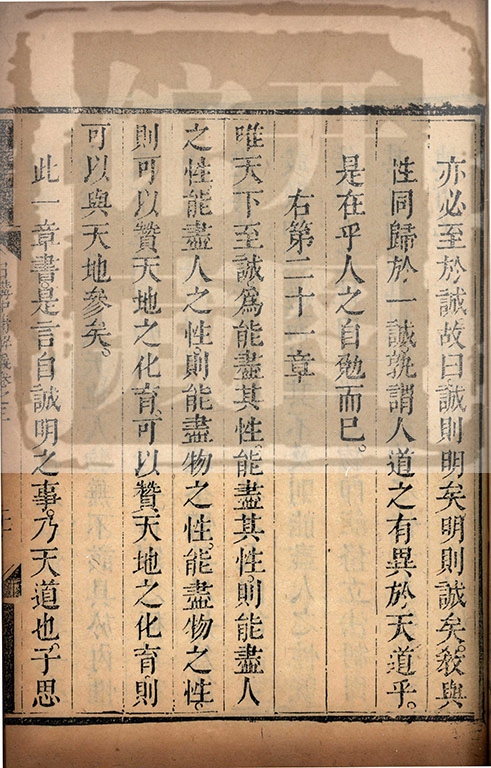 亦必至於誠故曰誠則明矣明則誠矣。教與
性同歸於一誠孰謂人道之有異於天道乎。
是在乎人之自勉而已。
右第二十一章
唯天下至誠。爲能盡其性。能盡其性。則能盡人
之性。能盡人之性。則能盡物之性。能盡物之性。
則可以贊天地之化育。可以贊天地之化育。則
可以與天地參矣。
此一章書。是言自誠明之事。乃天道也。子思